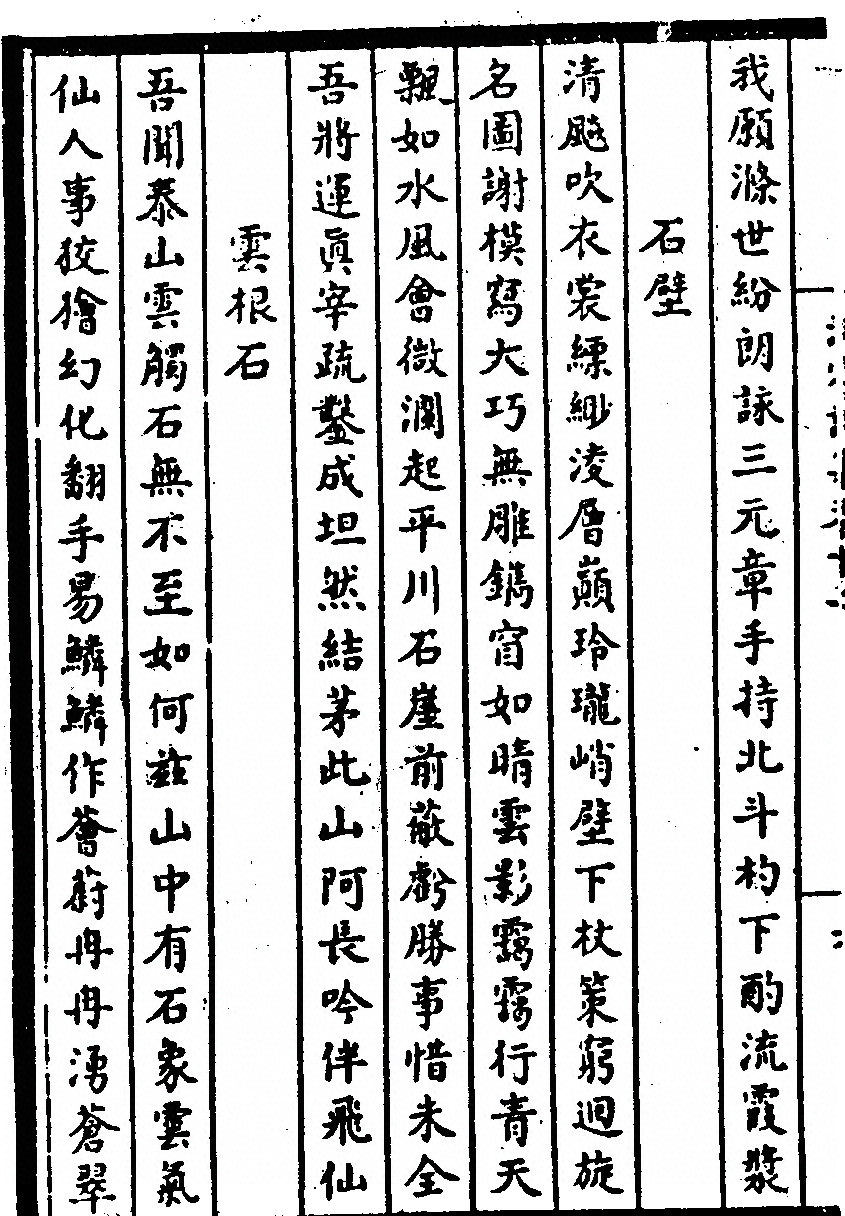 我願滌世紛朗詠三元章手持北斗杓下酌流霞漿
石壁
清飈吹衣裳縹緲淩層巔玲瓏峭壁下杖策窮迴旋
名圖謝模寫大巧無雕鐫窅如晴雲影靄靄行青天
飄如水風會微瀾起平川石崖前蔽虧勝事惜未全
吾將運眞宰疏鑿成坦然結茅此山阿長吟伴飛仙
雲根石
吾聞泰山雲觸石無不至如何茲山中有石象雲氣
仙人事狡獪幻化翻手易鱗鱗作薈蔚冉冉湧蒼翠